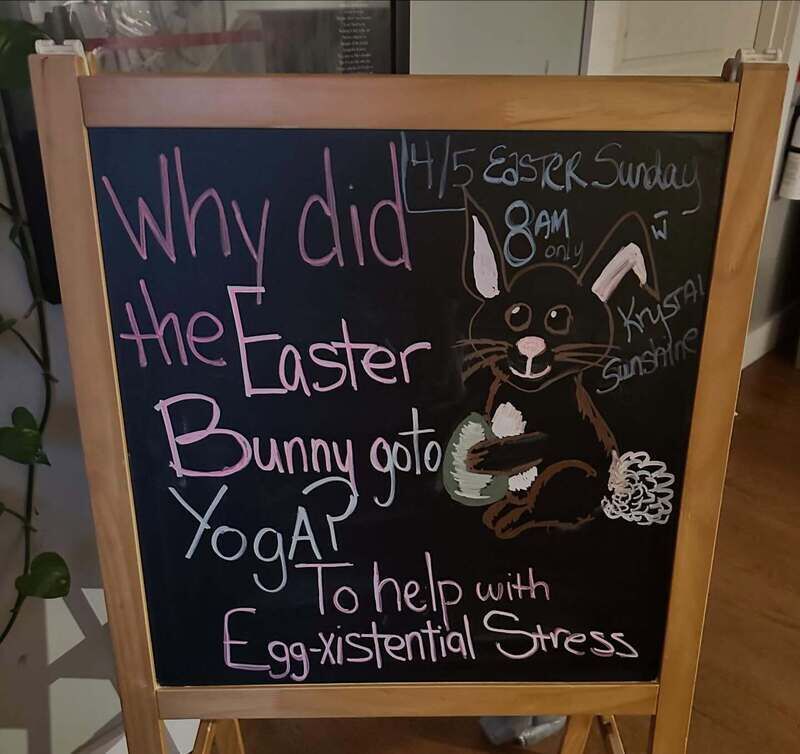 Why did
the Easter
Bunny goto
YogA?
To help with
Egg-xistential Stress
4/5 EASTER Sunday
8AM
only
w̄
KrystAl
Sunshine